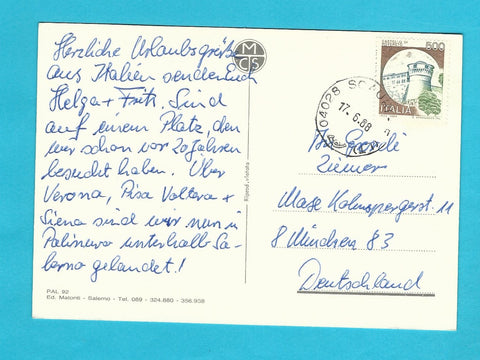 Herzliche Urlaubsgrüße
aus Italien senden Euch
Helga + Fritz. Sind
auf einem Platz, den
wir schon vor 20 Jahren
besucht haben. Über
Verona, Pisa Voltera +
Siena sind wir nun in
Palinuro unterhalb Sa-
lerno gelandet!
PAL 92
Ed. Matonti - Salerno - Tel. 089 - 324.880 - 356.938
MCS
Riprod. vietata
500
ITALIA
04028
17.6.88
Ziemer
8 München 83
Deutschland